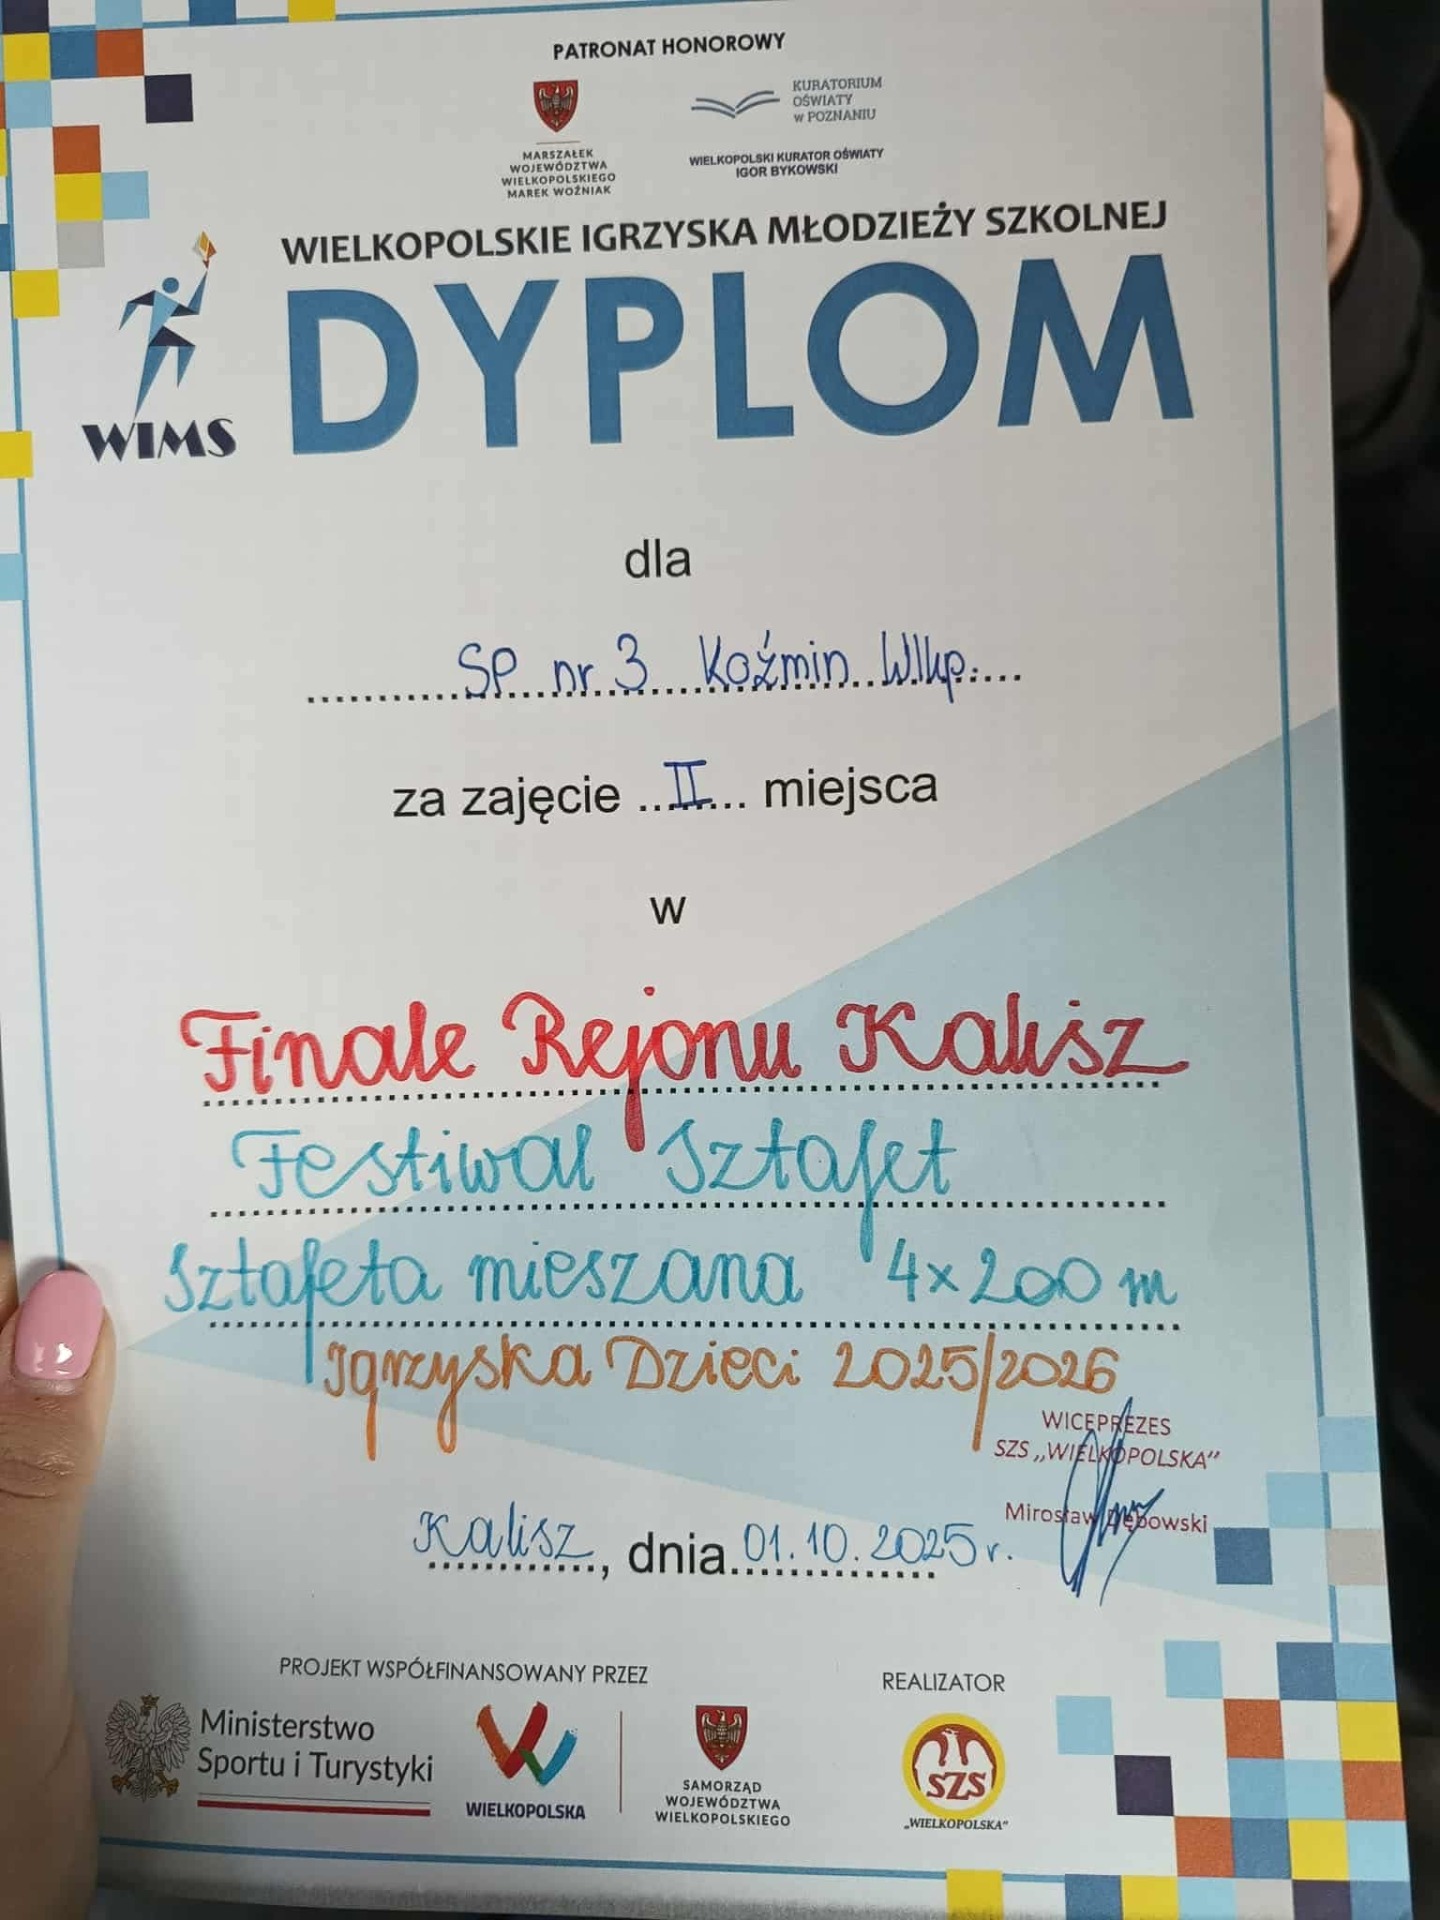 PATRONAT HONOROWY
MARSZAŁEK
WOJEWÓDZTWA
WIELKOPOLSKIEGO
MAREK WOŹNIAK
KURATORIUM
OŚWIATY
w POZNANIU
WIELKOPOLSKI KURATOR OŚWIATY
IGOR BYKOWSKI
WIELKOPOLSKIE IGRZYSKA MŁODZIEŻY SZKOLNEJ
WIMS
DYPLOM
dla
SP nr 3 Koźmin Wlkp.
za zajęcie II miejsca
w
Finale Rejonu Kalisz
Festiwal Sztafet
Sztafeta mieszana 4x200 m
Igrzyska Dzieci 2025/2026
WICEPREZES
SZS „WIELKOPOLSKA"
Mirosław Dębowski
Kalisz, dnia 01.10.2025 r.
PROJEKT WSPÓŁFINANSOWANY PRZEZ
REALIZATOR
Ministerstwo
Sportu i Turystyki
WIELKOPOLSKA
SAMORZĄD
WOJEWÓDZTWA
WIELKOPOLSKIEGO
SZS
„WIELKOPOLSKA"